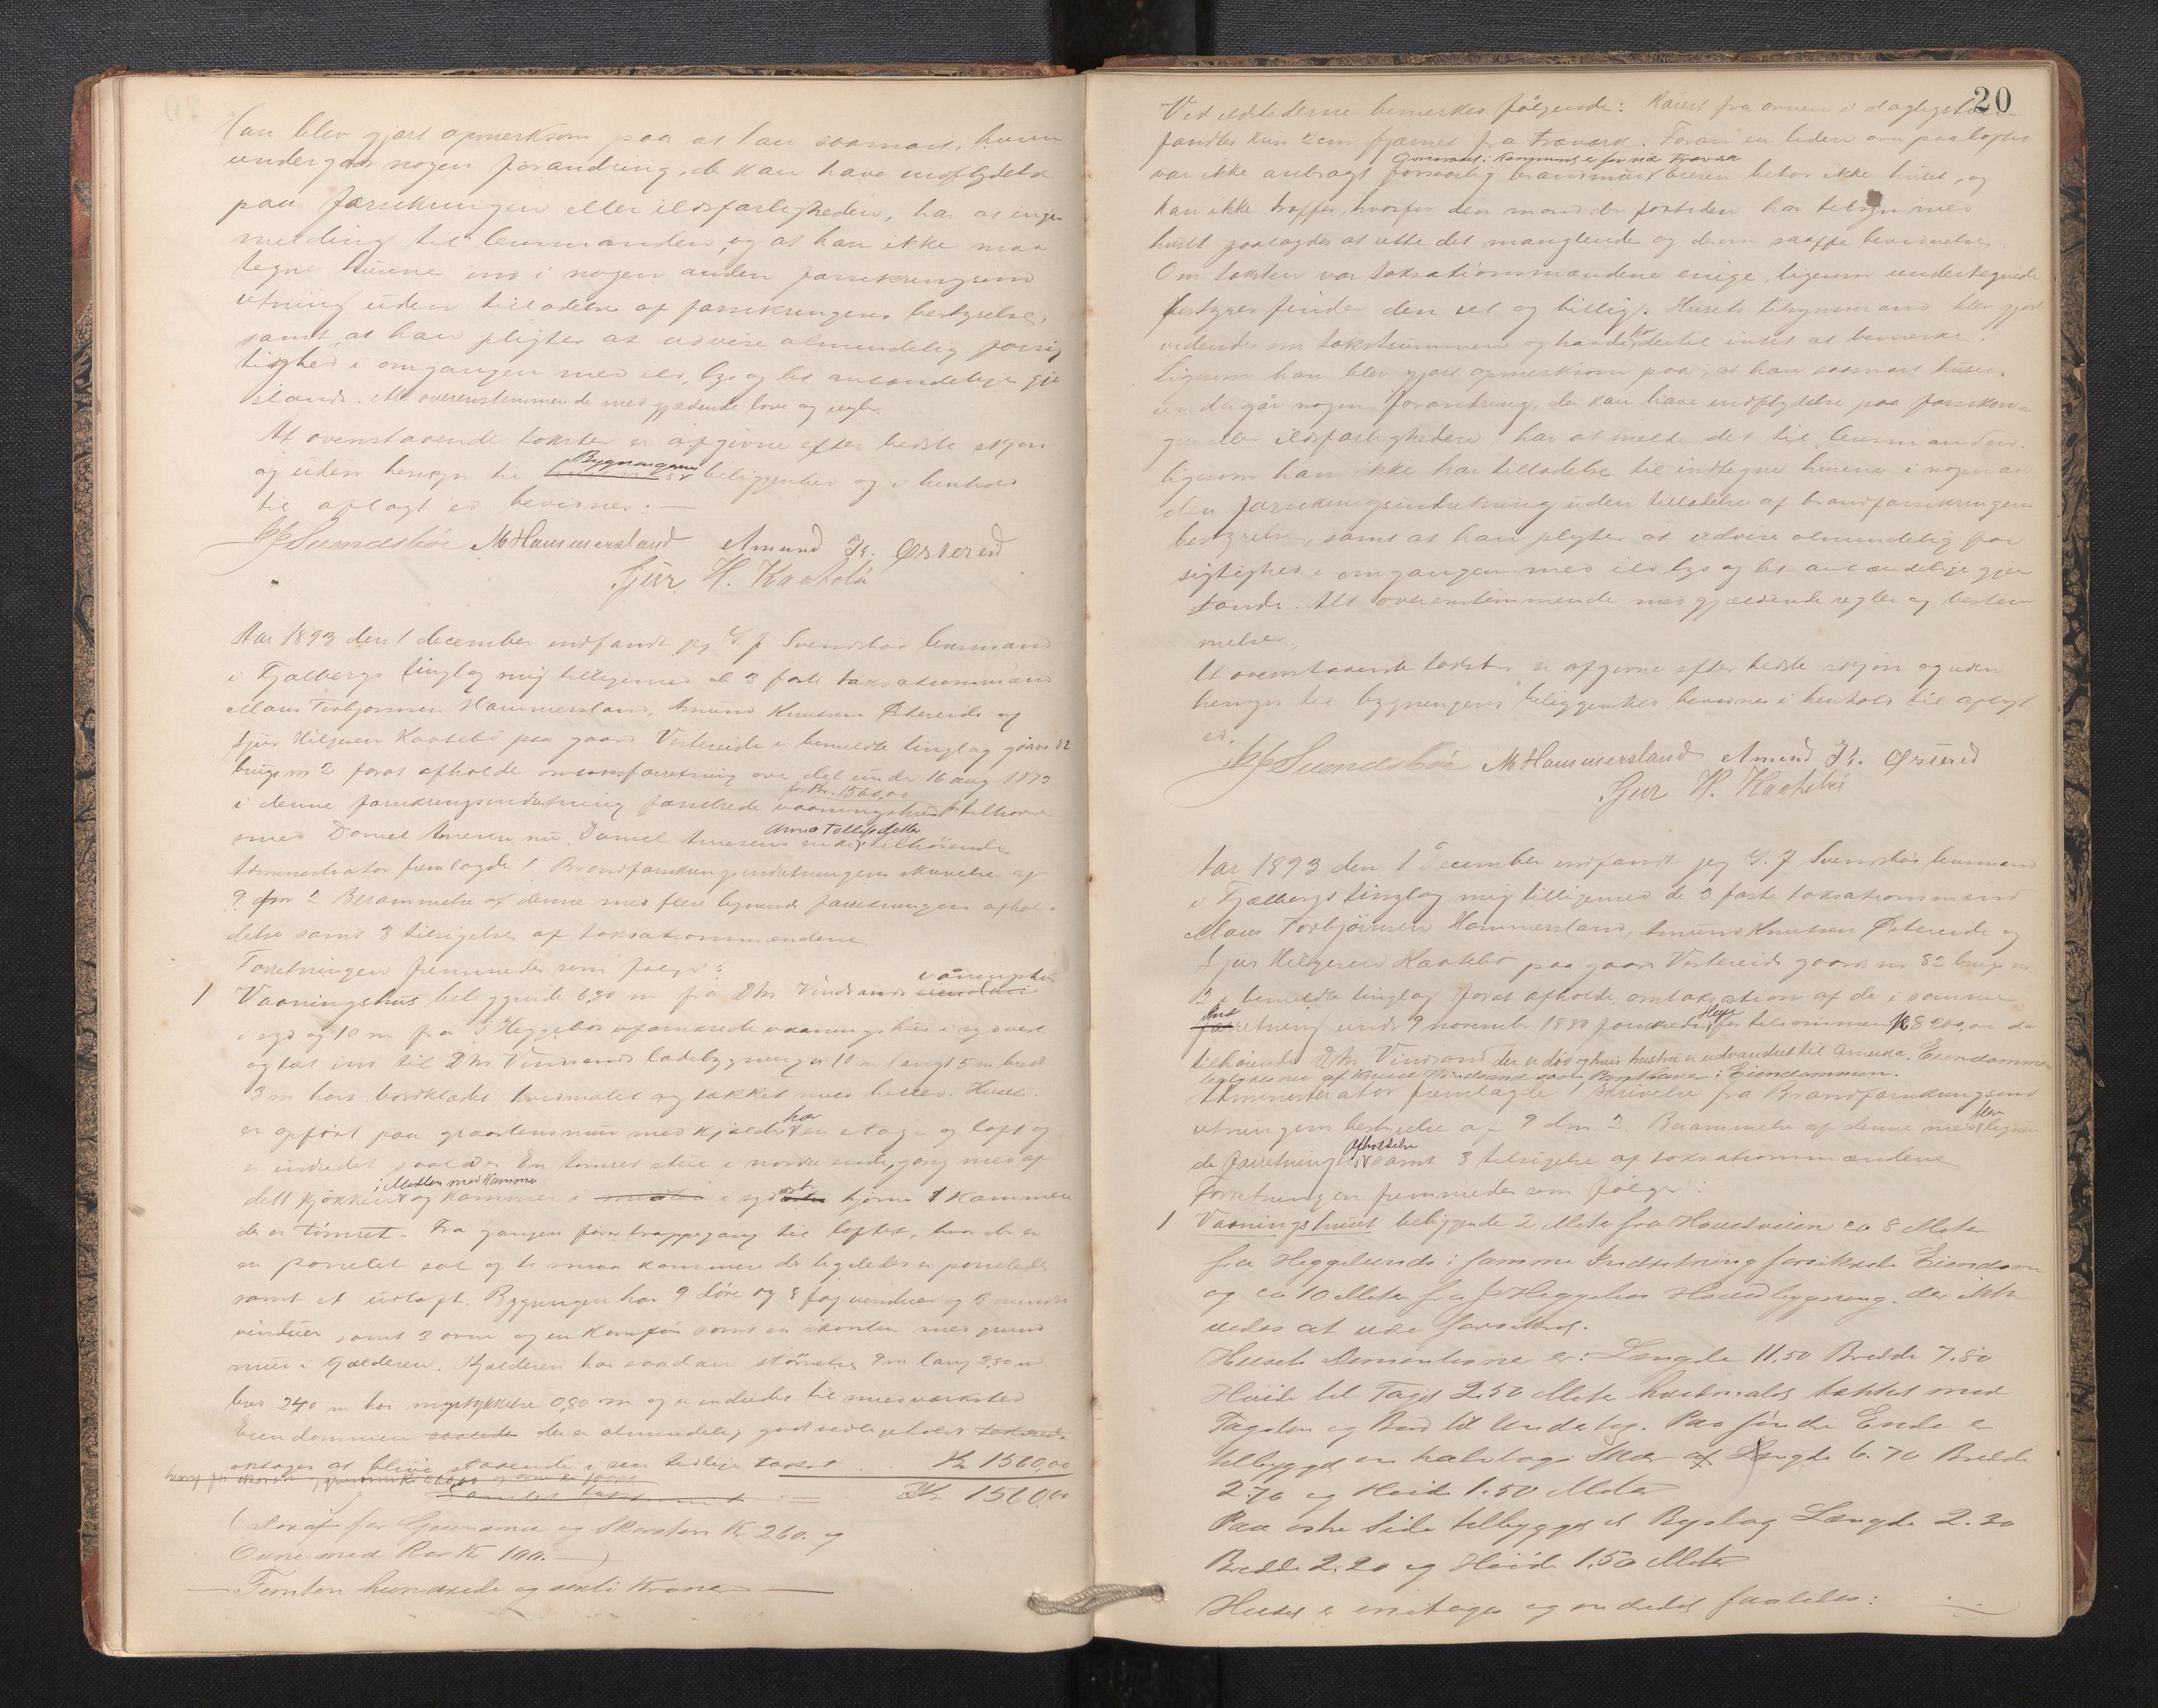 Han blev gjort opmerksom paa at han saasnart, husene
undergaar nogen forandring, de kan have indflydelse
paa forsikringen eller ildsfarligheden, har at inge
melding til lensmanden, og at han ikke maa
tegne husene ind i nogen anden forsikringsind
retning uden tilladelse af forsikringens bestyrelse,
samt at han pligter at udvise almindelig forsig
tighed i omgangen med ild, lys og let antændelige gjen
stande. Alt overensstemmende med gjældende love og regler.
At ovenstaaende takster er afgivne efter bedste skjøn
og uden hensyn til Bygningens beliggenhed og i henhold
til aflagt ed bevidnes: —
G J Svendsbøe M Hammersland Amund K. Østereid
Sjur H. Kaatebø
Aar 1893 den 1 december indfandt jeg G J Svendsbøe lensmand
i Fjælbergs tinglag mig tilligemed de 3 faste taksationsmænd
Mons Torbjørnsen Hammersland, Amund Knutsen Østereide og
Sjur Helgesen Kaatebø paa gaard Vestereide i bemeldte tinglag gaards 82
brugs nr 2 forat afholde omtaxtforretning over det under 16 aug 1873
for Kr. 1560,00
i denne forsikringsindretning forsikrede vaaningshus tilhøre
ende Daniel Amesen nu Daniel Amesens enke tilhørende
Administrator fremlagde 1 Brandforsikringsindretningens skrivelse af
9 dm 2 Berammelse af denne med flere lignende forsikringers afhol-
delse samt 3 tilsigelse af taksationsmændene
Forretningen fremmedes som følger:
1 Vaaningshus beliggende 6,90 m fra D Ms Vindsands vaaningshus
i syd og 10 m fra J Heggebøs uforsikrede vaaningshus i sydvest
og tæt ind til D Ms Vindsands ladebygning er 11 m langt 5 m bredt
3 m høit bordklædt, hvidmalet og tækket med heller. Huset
er opført paa graastensmur med kjælder har en etage og loft og
er indredet saaledes En tømret stue i nordre ende, gang med af
i Midten med Kammer
delt kjøkken og kammer i syd hjørne 1 Kammer
der er tømret - Fra gangen fører trappegang til loftet, hvor der er
en panelet sal og to smaa kammere der ligeledes er panelede
samt et udloft. Bygningen har 9 døre og 8 fag vinduer og 3 mindre
vinduer samt 3 ovne og en komfur samt en skorsten med grund
mur i kjælderen. Kjælderen har saadan størrelse 9 m lang 3,80 m
bred 2,40 m høi murtykkelse 0,80 m og er indredet til smedværksted
Eiendommen der er almindelig godt vedligeholdt
antages at blive staaende i sin tidligere takst Kr 1560,00
Kr 1560,00
(Heraf for Grundmur og Skorsten Kr 260. og
Ovne med Rør Kr 100. —)
— Femten hundrede og seksti Kroner —
20
Ved ildstederne bemerkes følgende: Røret fra ovnen i dagligstuen
fandtes kun 2 cm fjernet fra træværk. Foran en liden ovn paa loftet
Ovnsrøret i Kammeret er for nær Træværk
var ikke anbragt forsvarlig brandmur eieren bebor ikke huset, og
kan ikke træffes, hvorfor den mand der fortiden har tilsyn med
huset paalagdes at rette det manglende og derom skaffe bevidnelse.
Om taksten var taksationsmændene enige, ligesom undertegnede
bestyrer finder den ret og billig. Husets tilsynsmand blev gjort
vidende om takstsummen og havde dertil intet at bemærke.
Ligesom han blev gjort opmerksom paa, at han saasnart huset
undergår nogen forandring, der kan have indflydelse paa forsikrin-
gen eller ildsfarligheden, har at melde det til lensmanden.
ligesom han ikke har tilladelse til indtegne husene i nogen an
den forsikringsindretning uden tilladelse af brandforsikringens
bestyrelse, samt at han pligter at udvise almindelig for
sigtighed i omgangen med ild lys og let antændelige gjen
stande. Alt overenstemmende med gjældende regler og bestem
melser.
At ovenstaaende takster er afgivne efter bedste skjøn og uden
hensyn til bygningens beliggenhed bevidnes i henhold til aflagt
ed.
G J Svendsbøe M Hammersland Amund K. Østereid
Sjur H. Kaatebø
Aar 1893 den 1 december indfandt jeg G. J Svendsbøe lensmand
i Fjælbergs tinglag mig tilligemed de 3 faste taksationsmænd
Mons Torbjørnsen Hammersland, Amund Knutsen Østereide og
Sjur Helgesen Kaatebø paa gaard Vestereide gaards nr 82 brugs nr
2 i bemeldte tinglag forat afholde omtaksation af de i samme
Indretning under 9 november 1880 forsikrede Huse for tilsammen Kr 8200,00 de
tilhørende D Ms Vindsand der er død og hans hustru er udvandret til Amerika. Eiendommen
bestyres nu af Knud Vindsand som Panthaver i Eiendommen.
Administrator fremlagde 1 Skrivelse fra Brandforsikringsind
retningens bestyrelse af 9 dm. 2. Berammelse af denne med flere lignen
de forretningers Afholdelse samt 3 tilsigelse af taksationsmændene
Forretningen fremmedes som følger:
1 Vaaningshuset beliggende 2 Meter fra Hovedveien ca 8 Meter
fra Heggelunds i samme Indretning forsikrede Eiendom
og ca 10 Meter fra J Heggebøs Hovedbygning, der ikke
vides at være forsikret.
Husets Dimentioner er: Længde 11.50 Bredde 7.80
Høide til Taget 2.50 Meter hvidmalet tækket med
Tagsten og Bord til Underlag. Paa søndre Ende er
tilbygget en halvtags Skur Længde 6.70 Bredde
2.70 og Høide 1.50 Meter
Paa østre Side tilbygget et Byslag Længde 2.30
Bredde 2.20 og Høide 1.50 Meter
Huset er enetages og indredet saaledes: